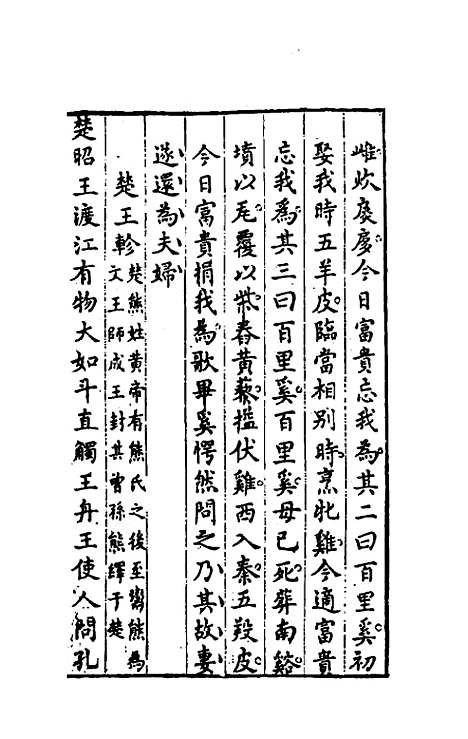 雌炊扊扅今日富貴忘我為其二曰百里奚初
娶我時五羊皮臨當相別時烹牝雞今適富貴
忘我為其三曰百里奚百里奚母已死葬南谿
墳以瓦覆以柴舂黃藜搤伏雞西入秦五羖皮
今日富貴捐我為歌畢奚愕然問之乃其故妻
遂還為夫婦
楚王軫楚熊姓黃帝有熊氏之後至鬻熊為
文王師成王封其曾孫熊繹于楚
楚昭王渡江有物大如斗直觸王舟王使人問孔